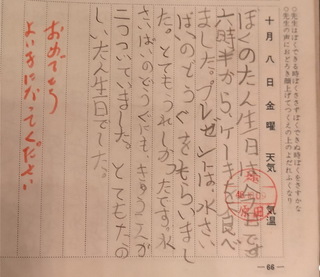 ○先生はぼくできる時ぼくささずぼくできぬ時ぼくをさすかな
○先生の声におどろき顔上げてつくえの上のよだれふくなり
十月八日金曜 天気 気温
ぼくのたん生日は今日です
六時半から、ケーキを食べ
ました。プレゼントは、水さい
ばいのどうぐをもらいまし
た。とてもうれしかったです。水
さいばいのどうぐにも、きゅうこんが
二つついていました。とてもたの
しいたん生日でした。
おめでとう
よい子になってください
66